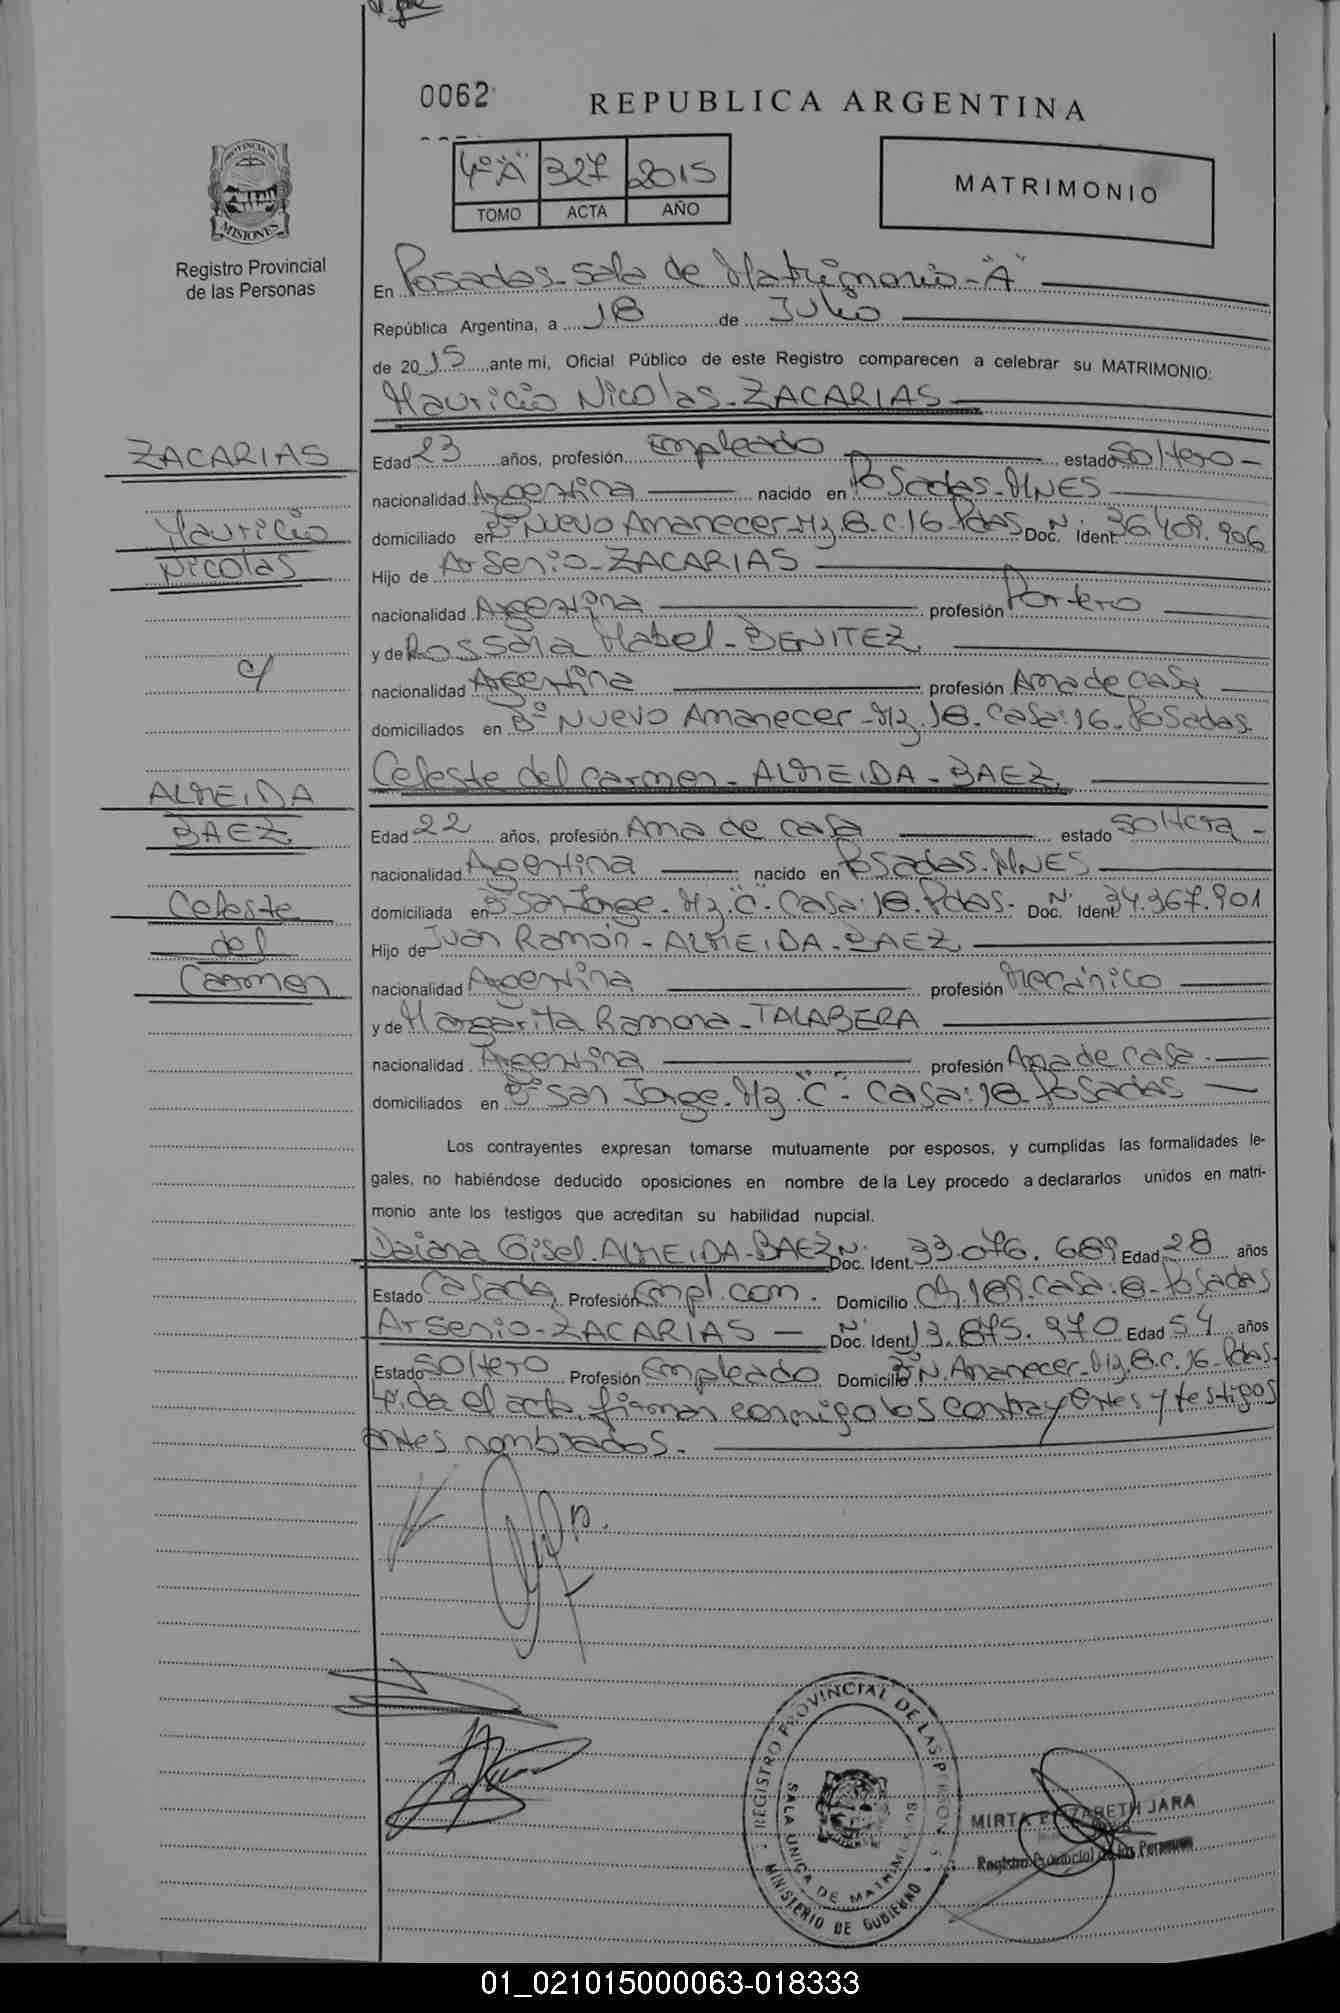 0062
REPUBLICA ARGENTINA
4º "A" 327 2015
TOMO ACTA AÑO
MATRIMONIO
PROVINCIA DE
MISIONES
Registro Provincial
de las Personas
En Posadas - Sala de Matrimonio - "A"
República Argentina, a 18 de Julio
de 2015 ante mi, Oficial Público de este Registro comparecen a celebrar su MATRIMONIO:
Mauricio Nicolas - ZACARIAS
ZACARIAS
Mauricio
Nicolas
c/
ALMEIDA
BAEZ
Celeste
del
Carmen
Edad 23 años, profesión Empleado estado Soltero -
nacionalidad Argentina nacido en Posadas - MNES
domiciliado en Bº Nuevo Amanecer - Mz 18. C. 16 - Pdas Doc. Nº Ident. 36.409.906
Hijo de Arsenio - ZACARIAS
nacionalidad Argentina profesión Portero
y de Rossana Mabel - BENITEZ
nacionalidad Argentina profesión Ama de Casa
domiciliados en Bº Nuevo Amanecer - Mz 18 - Casa: 16 - Posadas
Celeste del Carmen - ALMEIDA - BAEZ
Edad 22 años, profesión Ama de casa estado Soltera -
nacionalidad Argentina nacido en Posadas - MNES
domiciliada en Bº San Jorge - Mz. "C" - Casa: 18. Pdas. Doc. Nº Ident. 34.367.901
Hijo de Juan Ramón - ALMEIDA - BAEZ
nacionalidad Argentina profesión Mecánico
y de Margarita Ramona - TALABERA
nacionalidad Argentina profesión Ama de Casa.
domiciliados en Bº San Jorge - Mz. "C" - Casa: 18 Posadas
Los contrayentes expresan tomarse mutuamente por esposos, y cumplidas las formalidades le-
gales, no habiéndose deducido oposiciones en nombre de la Ley procedo a declararlos unidos en matri-
monio ante los testigos que acreditan su habilidad nupcial.
Daiana Gisel - ALMEIDA - BAEZ Doc. Nº Ident. 33.076.689 Edad 28 años
Estado Casada Profesión Empl. com. Domicilio Ch. 189. Casa: 8 - Posadas
Arsenio - ZACARIAS - Doc. Nº Ident. 13.875.970 Edad 54 años
Estado Soltero Profesión Empleado Domicilio Bº N. Amanecer - Mz 18. C. 16 - Pdas.
Leída el acta, firman conmigo los contrayentes y testigos
antes nombrados. -
REGISTRO PROVINCIAL DE LAS PERSONAS
SALA UNICA DE MATRIMONIOS
MINISTERIO DE GOBIERNO
MIRTA ELIZABETH JARA
Registro Provincial de las Personas
01_021015000063-018333